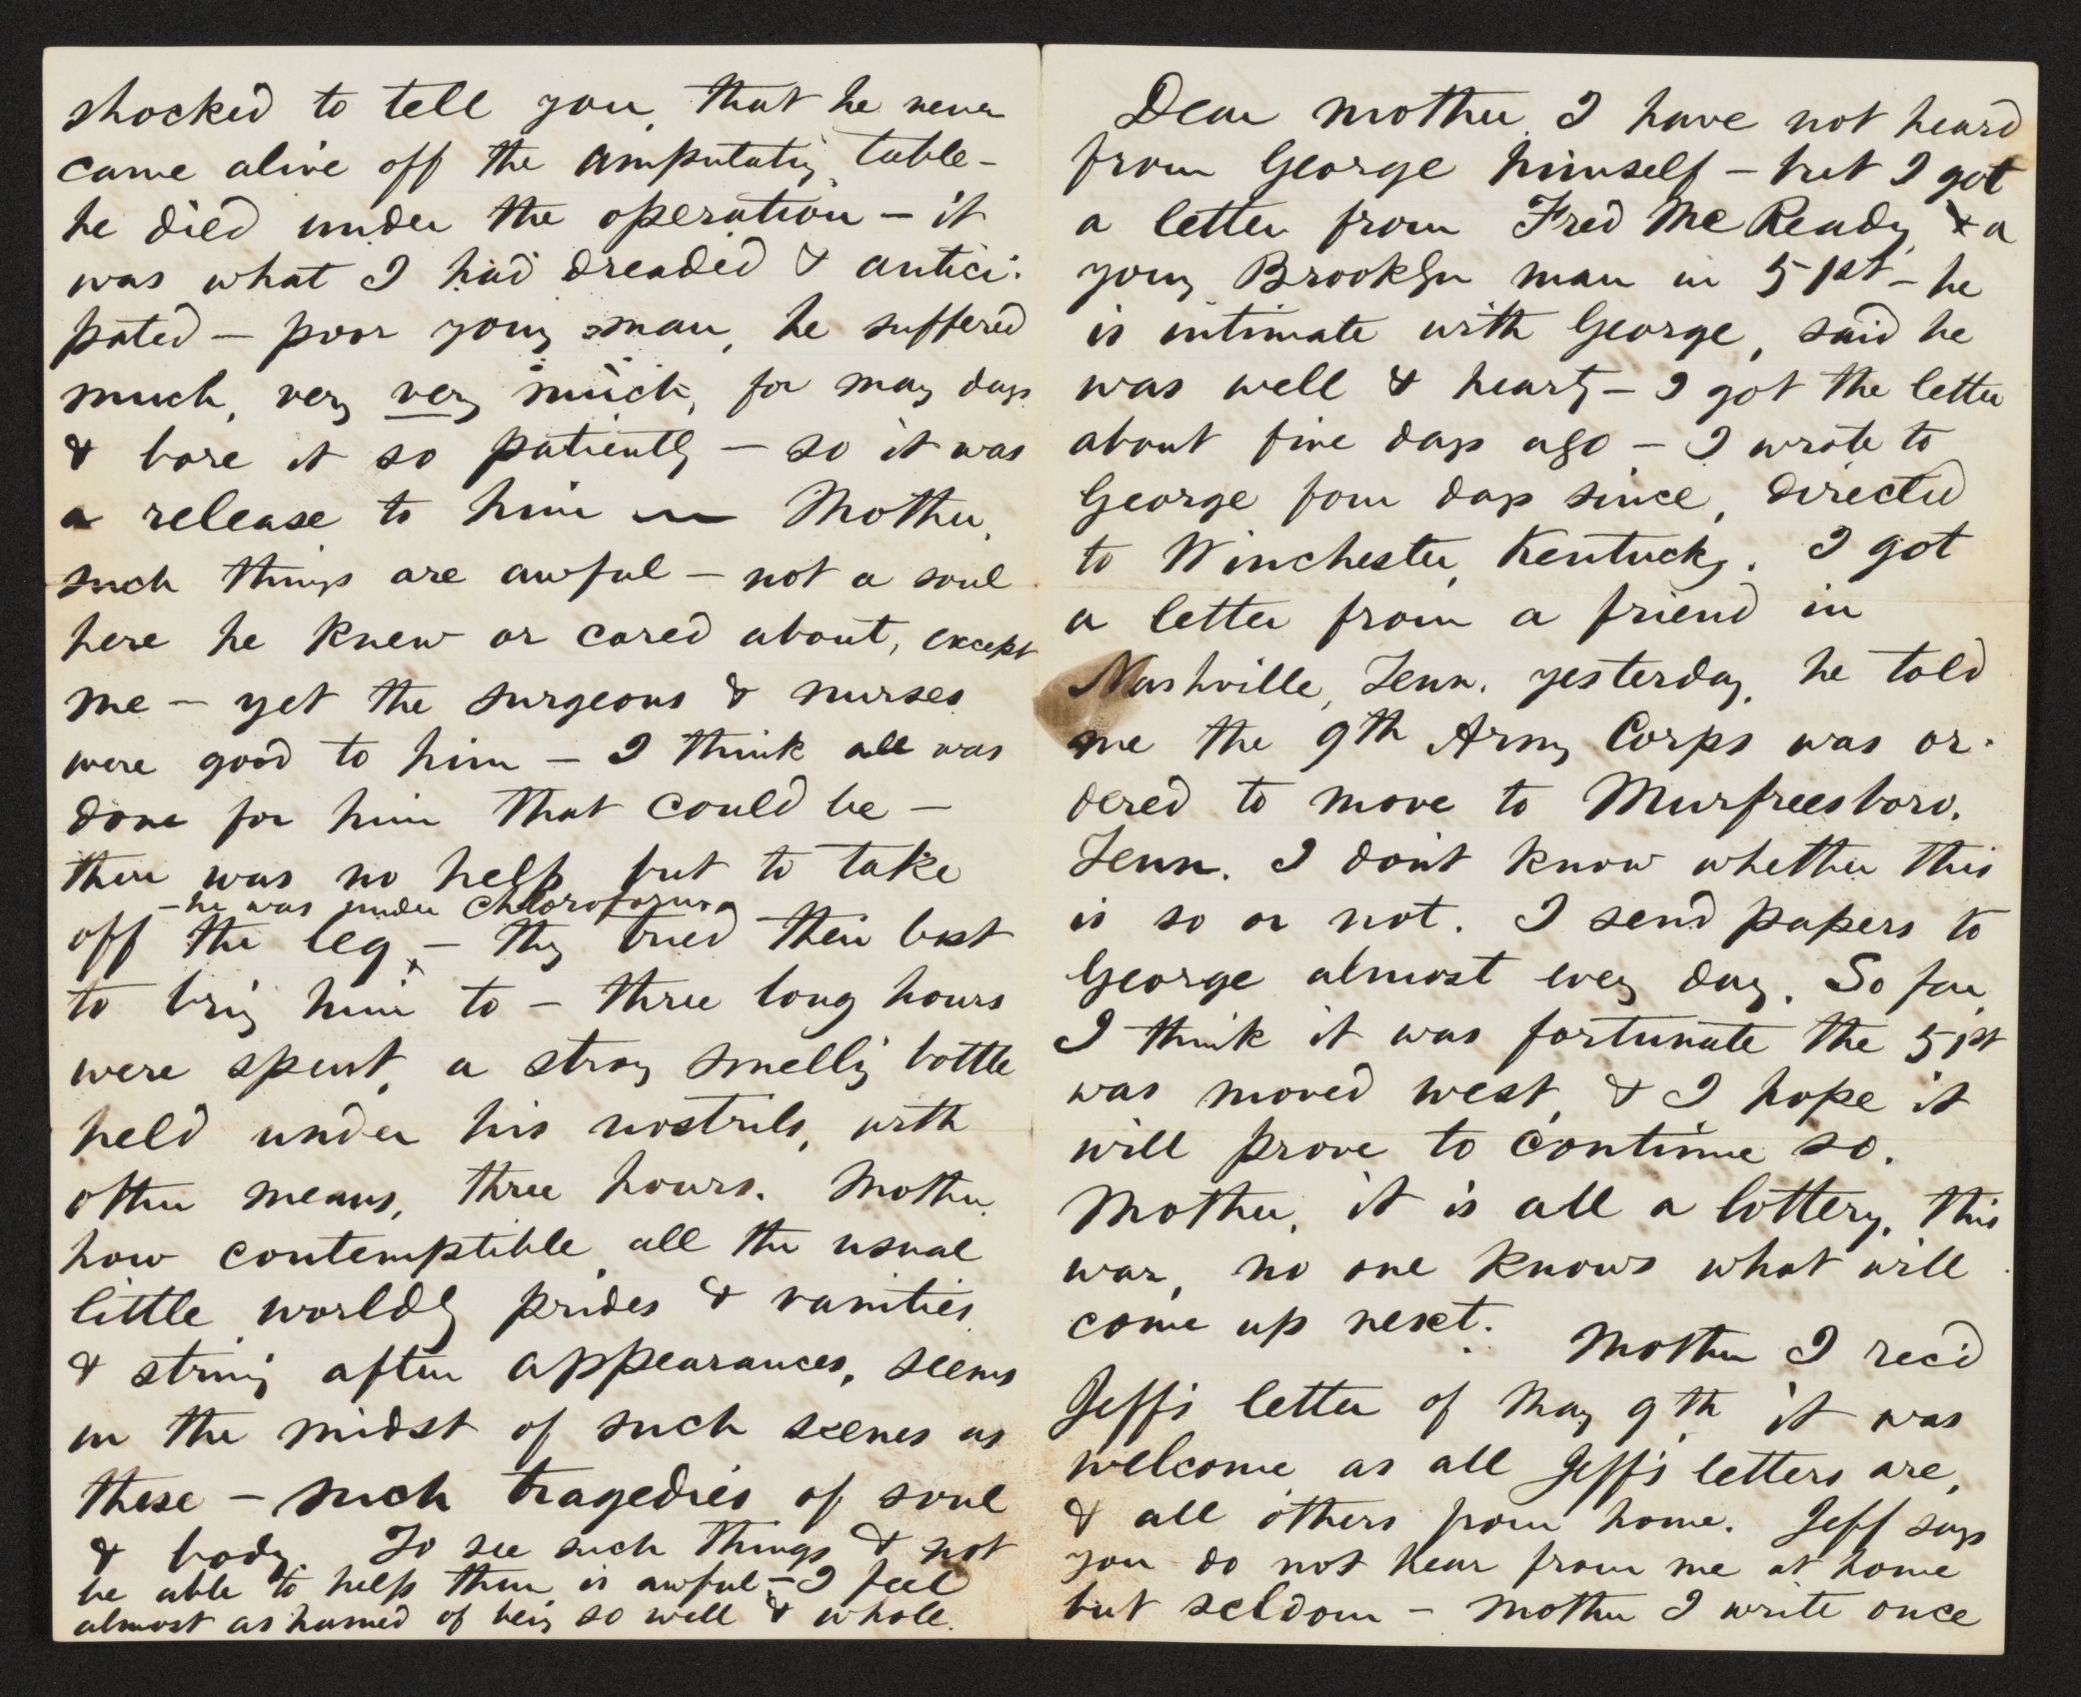 shocked to tell you, that he never
came alive off the amputating table –
he died under the operation – it
was what I had dreaded & antici-
pated – poor young man, he suffered
much, very very much, for many days
& bore it so patiently – so it was
a release to him — Mother,
such things are awful – not a soul
here he knew or cared about, except
me – yet the surgeons & nurses
were good to him – I think all was
done for him that could be –
there was no help but to take
– he was under chloroform
off the leg – they tried their best
to bring him to – three long hours
were spent, a strong smelling bottle
held under his nostrils, with
other means, three hours. Mother,
how contemptible all the usual
little worldly prides & vanities
& striving after appearances, seems
in the midst of such scenes as
these – such tragedies of soul
& body. To see such things & not
be able to help them is awful – I feel
almost ashamed of being so well & whole.
Dear mother, I have not heard
from George himself – but I got
a letter from Fred McReady, & a
young Brooklyn man in 51st – he
is intimate with George, said he
was well & hearty – I got the letter
about five days ago – I wrote to
George four days since, directed
to Winchester, Kentucky. I got
a letter from a friend in
Nashville, Tenn. yesterday, he told
me the 9th Army Corps was or-
dered to move to Murfreesboro,
Tenn. I don't know whether this
is so or not. I send papers to
George almost every day. So far
I think it was fortunate the 51st
was moved west, & I hope it
will prove to continue so.
Mother, it is all a lottery, this
war, no one knows what will
come up next. Mother I rec'd
Jeff's letter of May 9th, it was
welcome, as all Jeff's letters are,
& all others from home. Jeff says
you do not hear from me at home
but seldom – mother I write once